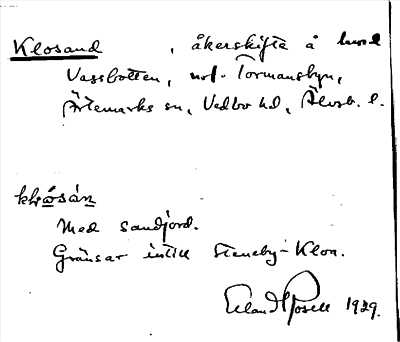 Klosand, åkerskifte å hmd
Vassbotten, nof. Tormansbyn,
Ärtemarks sn, Vedbo hd, Älvsb. l.
Med sandjord.
Gränsar intill Steneby-Kloa.
Erland Rosell 1929.